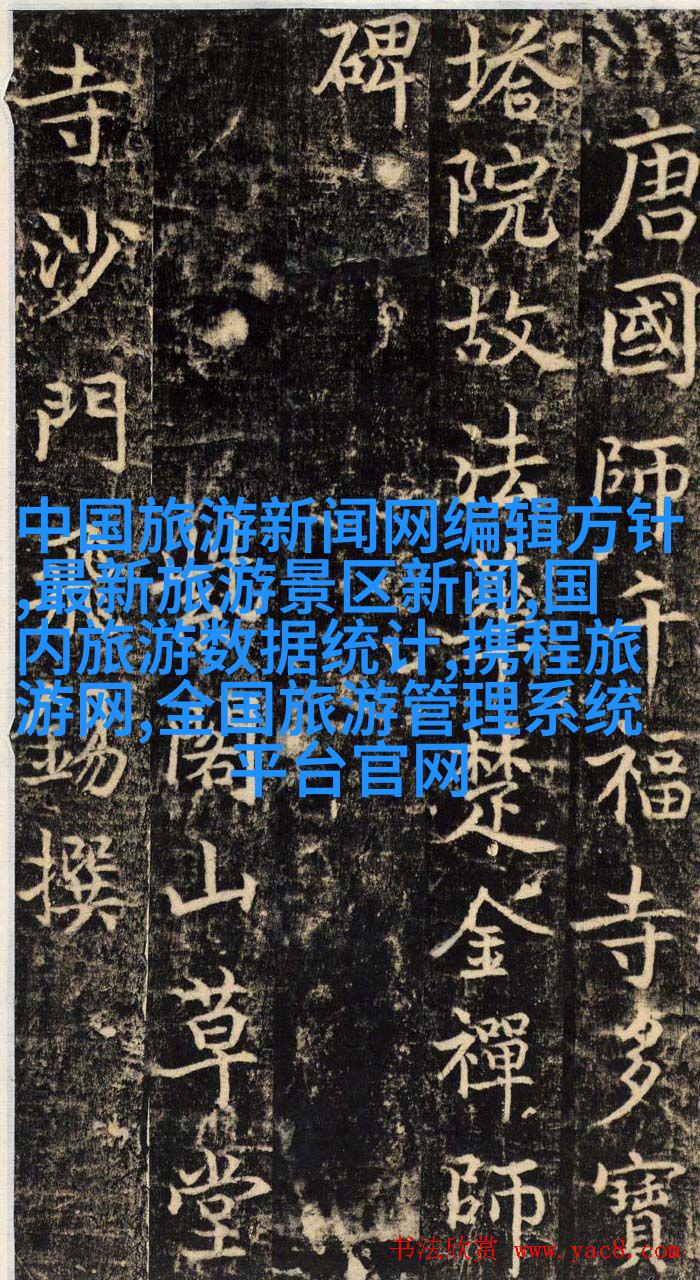 唐國師千福寺多寶
塔院故法楚金禪師
碑
閣山草堂
寺沙門飛錫撰
中国旅游新闻网编辑方针
,最新旅游景区新闻,国
内旅游数据统计,携程旅
游网,全国旅游管理系统
平台官网
书法欣赏 www.yac8.com